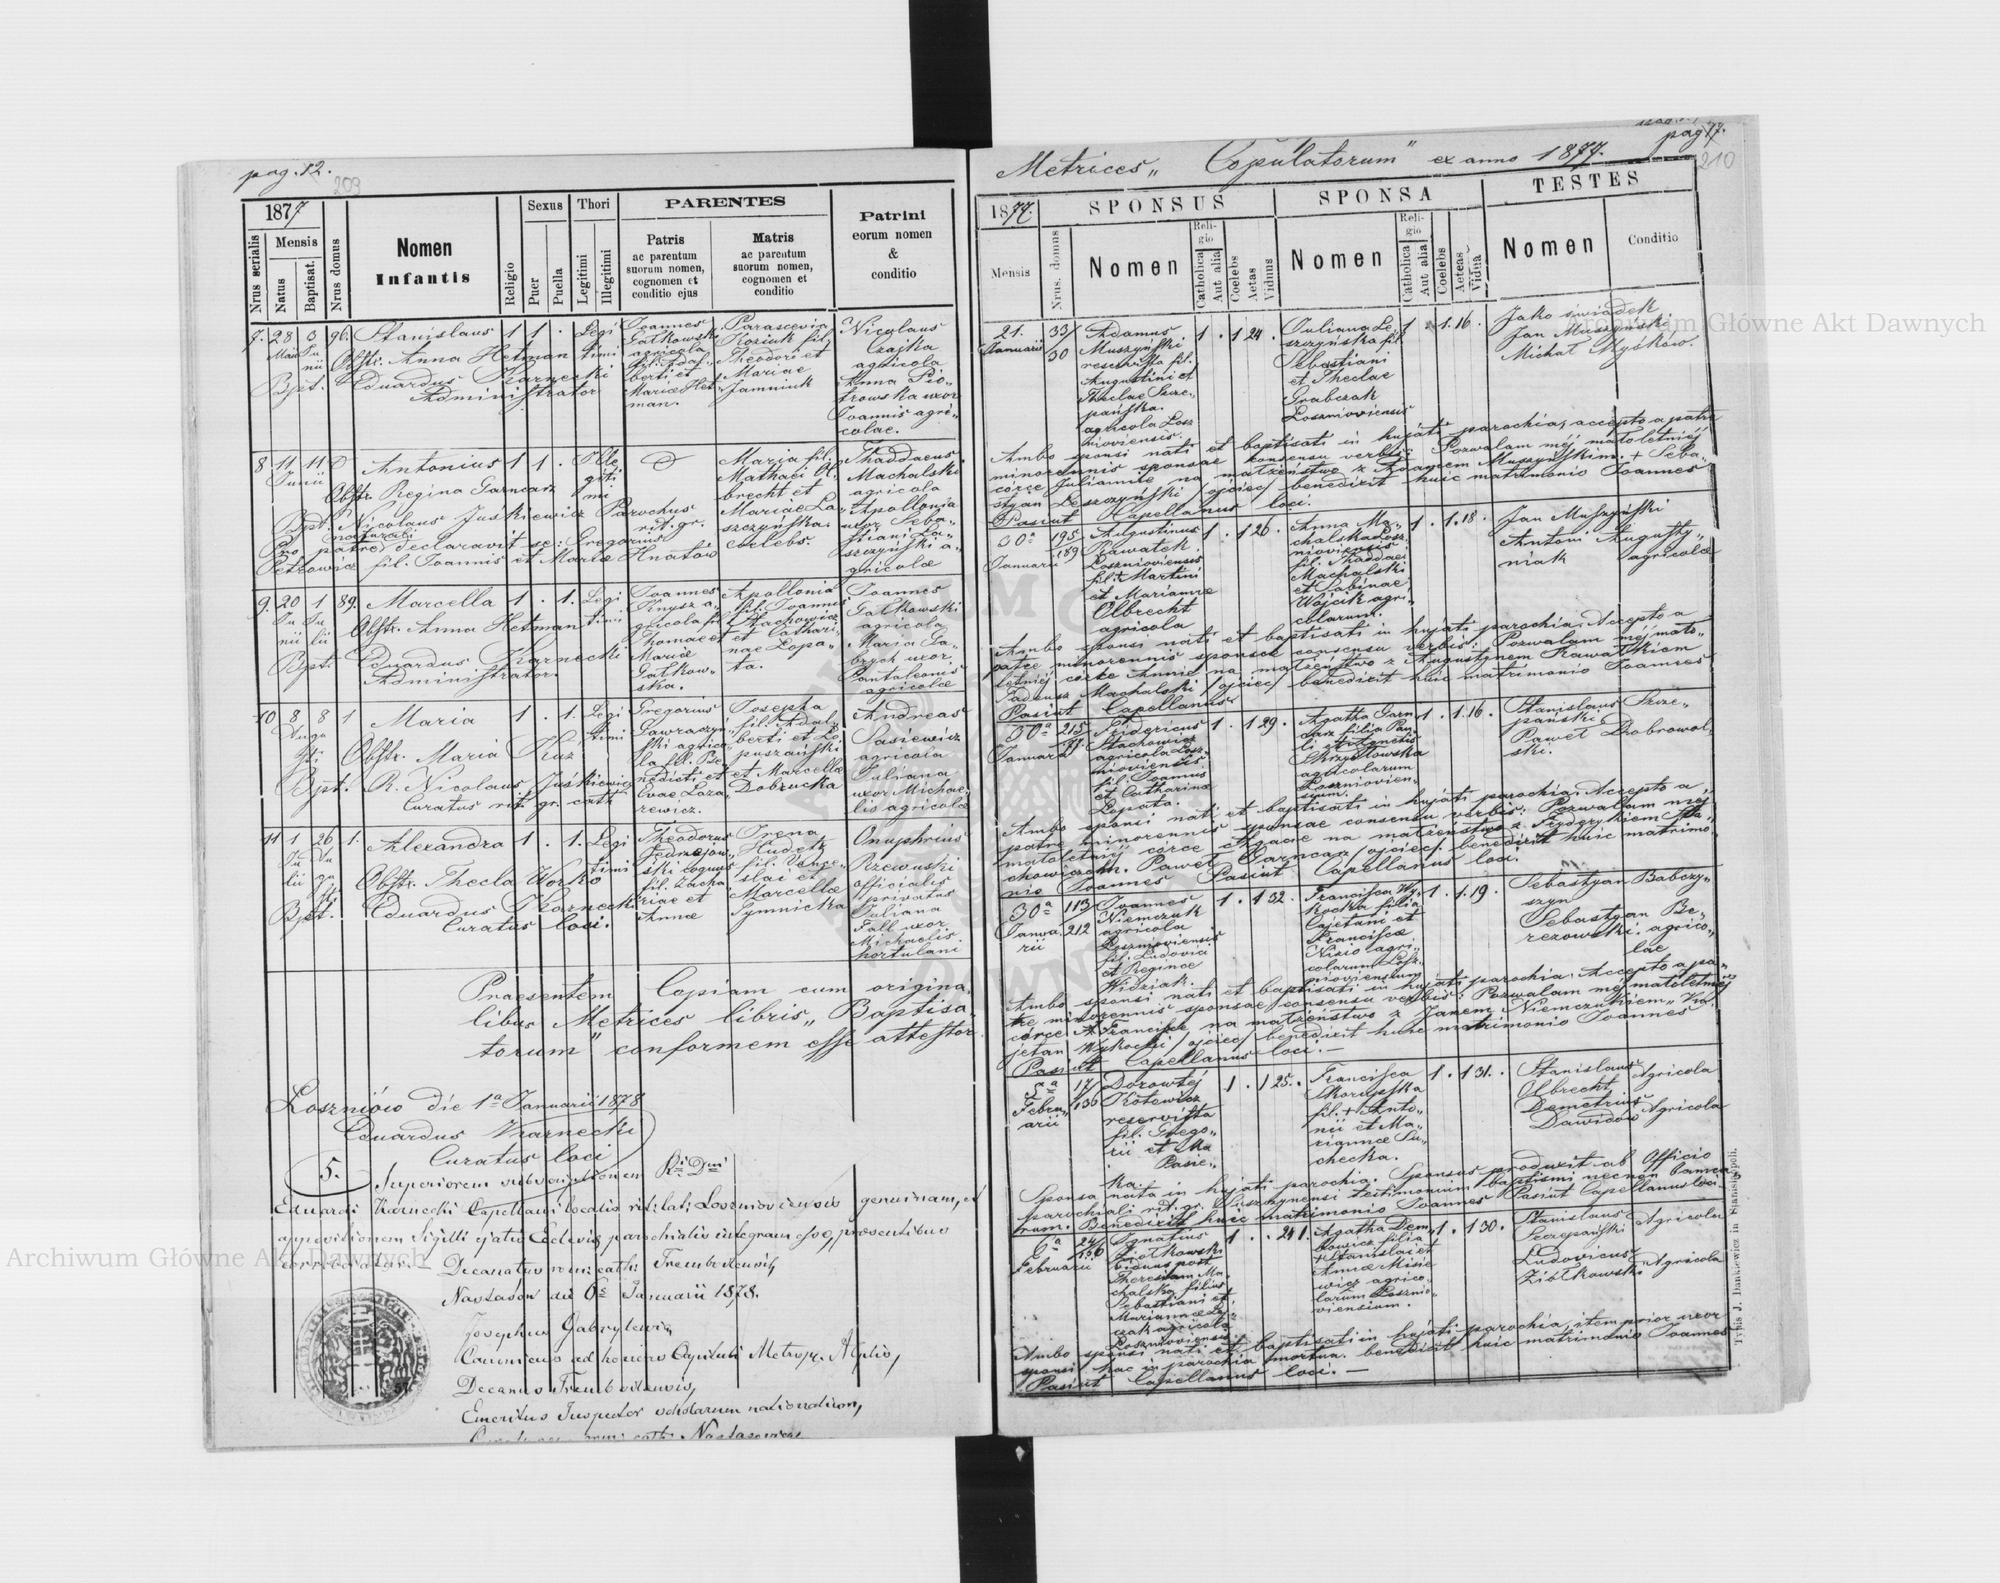 pag. 12.
209
1877
Nrus serialis
Mensis
Natus
Baptisat.
Nrus domus
Nomen
Infantis
Religio
Sexus
Puer
Puella
Thori
Legitimi
Illegitimi
PARENTES
Patris
ac parentum
suorum nomen,
cognomen et
conditio ejus
Matris
ac parentum
suorum nomen,
cognomen et
conditio
Patrini
eorum nomen
&
conditio
7. 28 3 96. Stanislaus 1 1 . Legi
Maii Ju
nii
timi
Obstr. Anna Hetman
Bpt. Eduardus Karnecki
Administrator
Joannes
Gatkowski
agricola
berti et
Mariae Het-
man.
Parascevia
Koziuk fil.
Theodori et
Mariae
Jamniuk
Nicolaus
Czajka
agricola
Anna Pio-
trowska uxor
Joannis agri-
colae.
8 11 11 Antonius 1 1 . Ille
Junii
giti
mi
Obstr. Regina Garncarz
Bpt. Nicolaus Juśkiewicz Parochus
rit. gr.
naturali
Pro patre declaravit se: Gregorius
Petrowicz fil. Joannis et Mariae Hnatów
Maria fil.
Mathaei Ol-
brecht et
Mariae La-
szczyńska
coelebs.
Thaddaeus
Machalski
agricola
Apollonia
uxor Seba-
stiani La-
szczyński a-
gricolae
9. 20 1 89. Marcella 1 . 1. Legi
Ju Ju
nii lii
timi
Obstr. Anna Hetman
Bpt. Eduardus Karnecki
Administrator.
Joannes
Knysz a-
gricola fil.
Thomae et
Mariae
Gatkow-
ska.
Apollonia
fil. Joannis
Stachowicz
et Cathari-
nae Lopa-
ta.
Joannes
Gatkowski
agricola
Maria Ga-
brych uxor
Pantaleonis
agricolae
10 8 8 1 Maria 1 . 1. Legi
Augu
sti
timi
Obstr. Maria Kuź
Bpt. R. Nicolaus Juśkiewicz
Curatus rit. gr. cath
Gregorius
Ławraczyń-
ski agrico-
la fil. Be-
nedicti et
Evae Laza-
rewicz.
Josepha
fil. Adal-
berti et Lo
puszański
et Marcellae
Dobrucka
Andreas
Sasiewicz
agricola
Juliana
uxor Michae-
lis agricolae
11 1 26 1. Alexandra 1 . 1. Legi
Ju
lii
timi
Obstr. Thecla Worko
Bpt. Eduardus Karnecki
Curatus loci.
Theodorus
Andrejow-
ski coquus
fil. Zacha-
riae et
Annae
Irena
Hudetz
fil. Vence-
slai et
Marcellae
Symnicka
Onuphrius
Rzewuski
officialis
privatus
Juliana
Fall uxor
Michaelis
hortulani
Praesentem Copiam cum origina-
libus Metrices libris „Baptisa-
torum" conformem esse attestor
Loszniów die 1ª Januarii 1878
Eduardus Karnecki
Curatus loci
5. Superiorem subscriptionem Rdi Dni
Eduardi Karnecki Capellani localis rit: lat: Loszniowiensis genuinam, et
appressionem Sigilli ejatis Ecclesiae parochialis integram esse, praesentibus
corroboratur.
Decanatus rom: cath: Trembowliensis
Nastasów die 6a Januarii 1878.
Josephus Gabrylewicz
Canonicus ad honores Capituli Metrop. Leopolis,
Decanus Trembowliensis,
Emeritus Inspector scholarum nationalium,
pag 17.
210
Metrices „ Copulatorum" ex anno 1877.
1877.
SPONSUS
SPONSA
TESTES
Mensis
Nrus. domus
Nomen
Religio
Catholica
Aut alia
Coelebs
Aetas
Viduus
Nomen
Religio
Catholica
Aut alia
Coelebs
Aeteas
Vidua
Nomen
Conditio
21.
Januarii
33/
30
Adamus
Muszyński
reservista fil.
Augustini et
Theclae Szcze-
pańska.
agricola Losz
niowiensis.
1 . 1 24 .
Juliana Le-
szczyńska fil.
Sebastiani
et Theclae
Grabczak
Loszniowiensis
1 . 1. 16.
Jako świadek
Jan Muszyński
Michał Myśków.
Ambo sponsi nati et baptisati in hujati parochia, accepto a patre
minorennis sponsae consensu verbis: Pozwalam mej małoletniej
córce Juliannie na małżeństwo z Adamem Muszyńskim. + Seba-
styan Leszczyński /ojciec/ benedixit huic matrimonio Joannes
Pasiut Capellanus loci.
30a
Januarii
195
189
Augustinus
Kawatek
Loszniowiensis
fil. + Martini
et Mariannae
Olbrecht
agricola
1 . 1 26 .
Anna Ma-
chalska Losz
niowiensis
fil. Thaddaei
Machalski
et Sabinae
Wójcik agri-
colarum.
1 . 1. 18 .
Jan Muszyński
Antoni Augusty-
niak
agricolae
Ambo sponsi nati et baptisati in hujati parochia. Accepto a
patre minorennis sponsae consensu verbis: Pozwalam mej mało-
letniej córce Annie na małżeństwo z Augustynem Kawatkiem
Tadeusz Machalski /ojciec/ benedixit huic matrimonio Joannes
Pasiut Capellanus
30a
Januarii
215
77.
Fridericus
Stachowicz
agricola Losz-
niowiensis
fil. Joannis
et Catharinae
Lopata.
1 . 1 29 .
Agatha Garn-
carz filia Pau-
li et Agnetis
Skrzyszowska
agricolarum
Loszniovien-
sium.
1 . 1. 16 .
Stanislaus Szcze-
pański
Paweł Dobrowol-
ski.
Ambo sponsi nati et baptisati in hujati parochia. Accepto a
patre minorennis sponsae consensu verbis: Pozwalam mej
małoletniej córce Agacie na małżeństwo z Frydrykiem Sta-
chowiczem. Paweł Garncarz /ojciec/ benedixit huic matrimo-
nio Joannes Pasiut Capellanus loci.
30a
Janua-
rii
113/
212
Joannes
Niemczuk
agricola
Loszniowiensis
fil. Ludovici
et Reginae
Widziak.
1 . 1 32 .
Francisca Wy-
kocka filia
Cajetani et
Franciscae
Nizio agri-
colarum Losz-
niowiensium
1 . 1. 19 .
Sebastyan Babczy-
szyn
Sebastyan Be-
rezowski. agrico-
lae
Ambo sponsi nati et baptisati in hujati parochia. Accepto a pa-
tre minorennis sponsae consensu verbis: Pozwalam mej małoletniej
córce Francisce, na małżeństwo z Janem Niemczukiem „Ka-
jetan Wykocki /ojciec/ benedixit huic matrimonio Joannes
Pasiut Capellanus loci. —
5a
Febru-
arii
17/
136
Dorowtej
Kotewicz
reservista
fil. Grego-
rii et Ma
Pasie-
ka.
1 . 1 25 .
Francisca
Skorupska
fil. + Anto-
nii et Ma-
riannae Su-
checka.
1 . 1 31 . .
Stanislaus Agricola
Olbrecht
Demetrius
Dawidów Agricola
Sponsa nata in hujati parochia. Sponsus produxit ab Officio
parochiali rit. gr. Suszczynensi testimonium baptismi necnon banno-
rum. Benedixit huic matrimonio Joannes Pasiut Capellanus loci
6a
Februarii
24/
156
Ignatius
Ziolkowski
viduus post
Theresiam Ma-
chalska filius
Sebastiani et
Mariannae Ly-
czak agricola
Loszniowiensis
1 . . 24 1 .
Agatha Dem-
kowicz filia
+ Stanislai et
Annae Misie
wicz agrico-
larum Losznio-
viensium.
1 . 1 30 .
Stanislaus Agricola
Szczepański
Ludovicus
Ziółkowski Agricola
Ambo sponsi nati et baptisati in hujati parochia, item prior uxor
sponsi hac in parochia mortua. benedixit huic matrimonio Joannes
Pasiut Capellanus loci. —
Typis J. Dankiewicz in Stanislopoli.
Archiwum Główne Akt Dawnych
Archiwum Główne Akt Dawnych